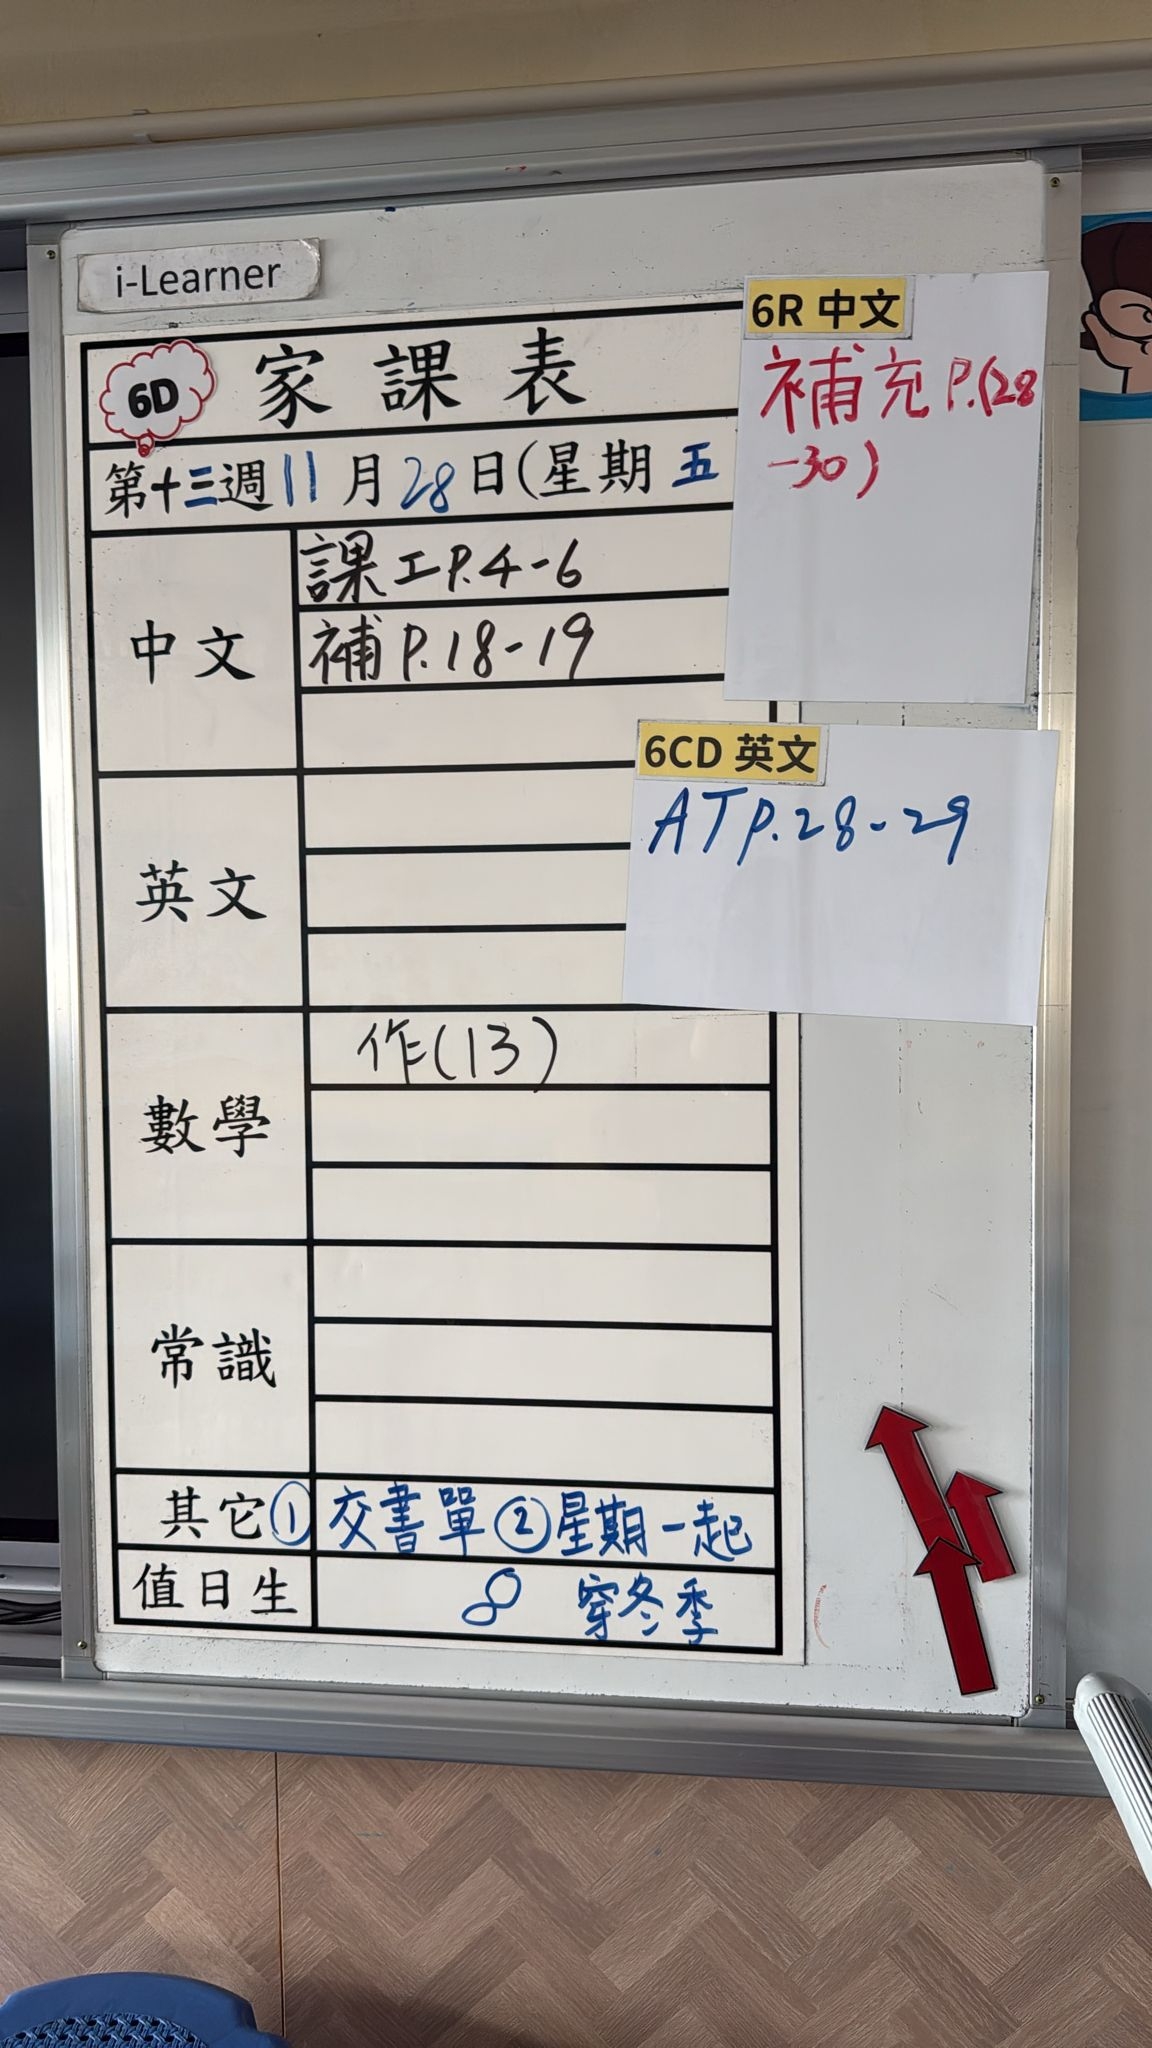 i-Learner
6D 家課表
第十三週 11月28日(星期五
中文
課工P.4-6
補P.18-19
英文
數學
作(13)
常識
其它 ① 交書單 ② 星期一起
穿冬季
值日生 8
6R 中文
補充P.(28
-30)
6CD 英文
ATP.28-29